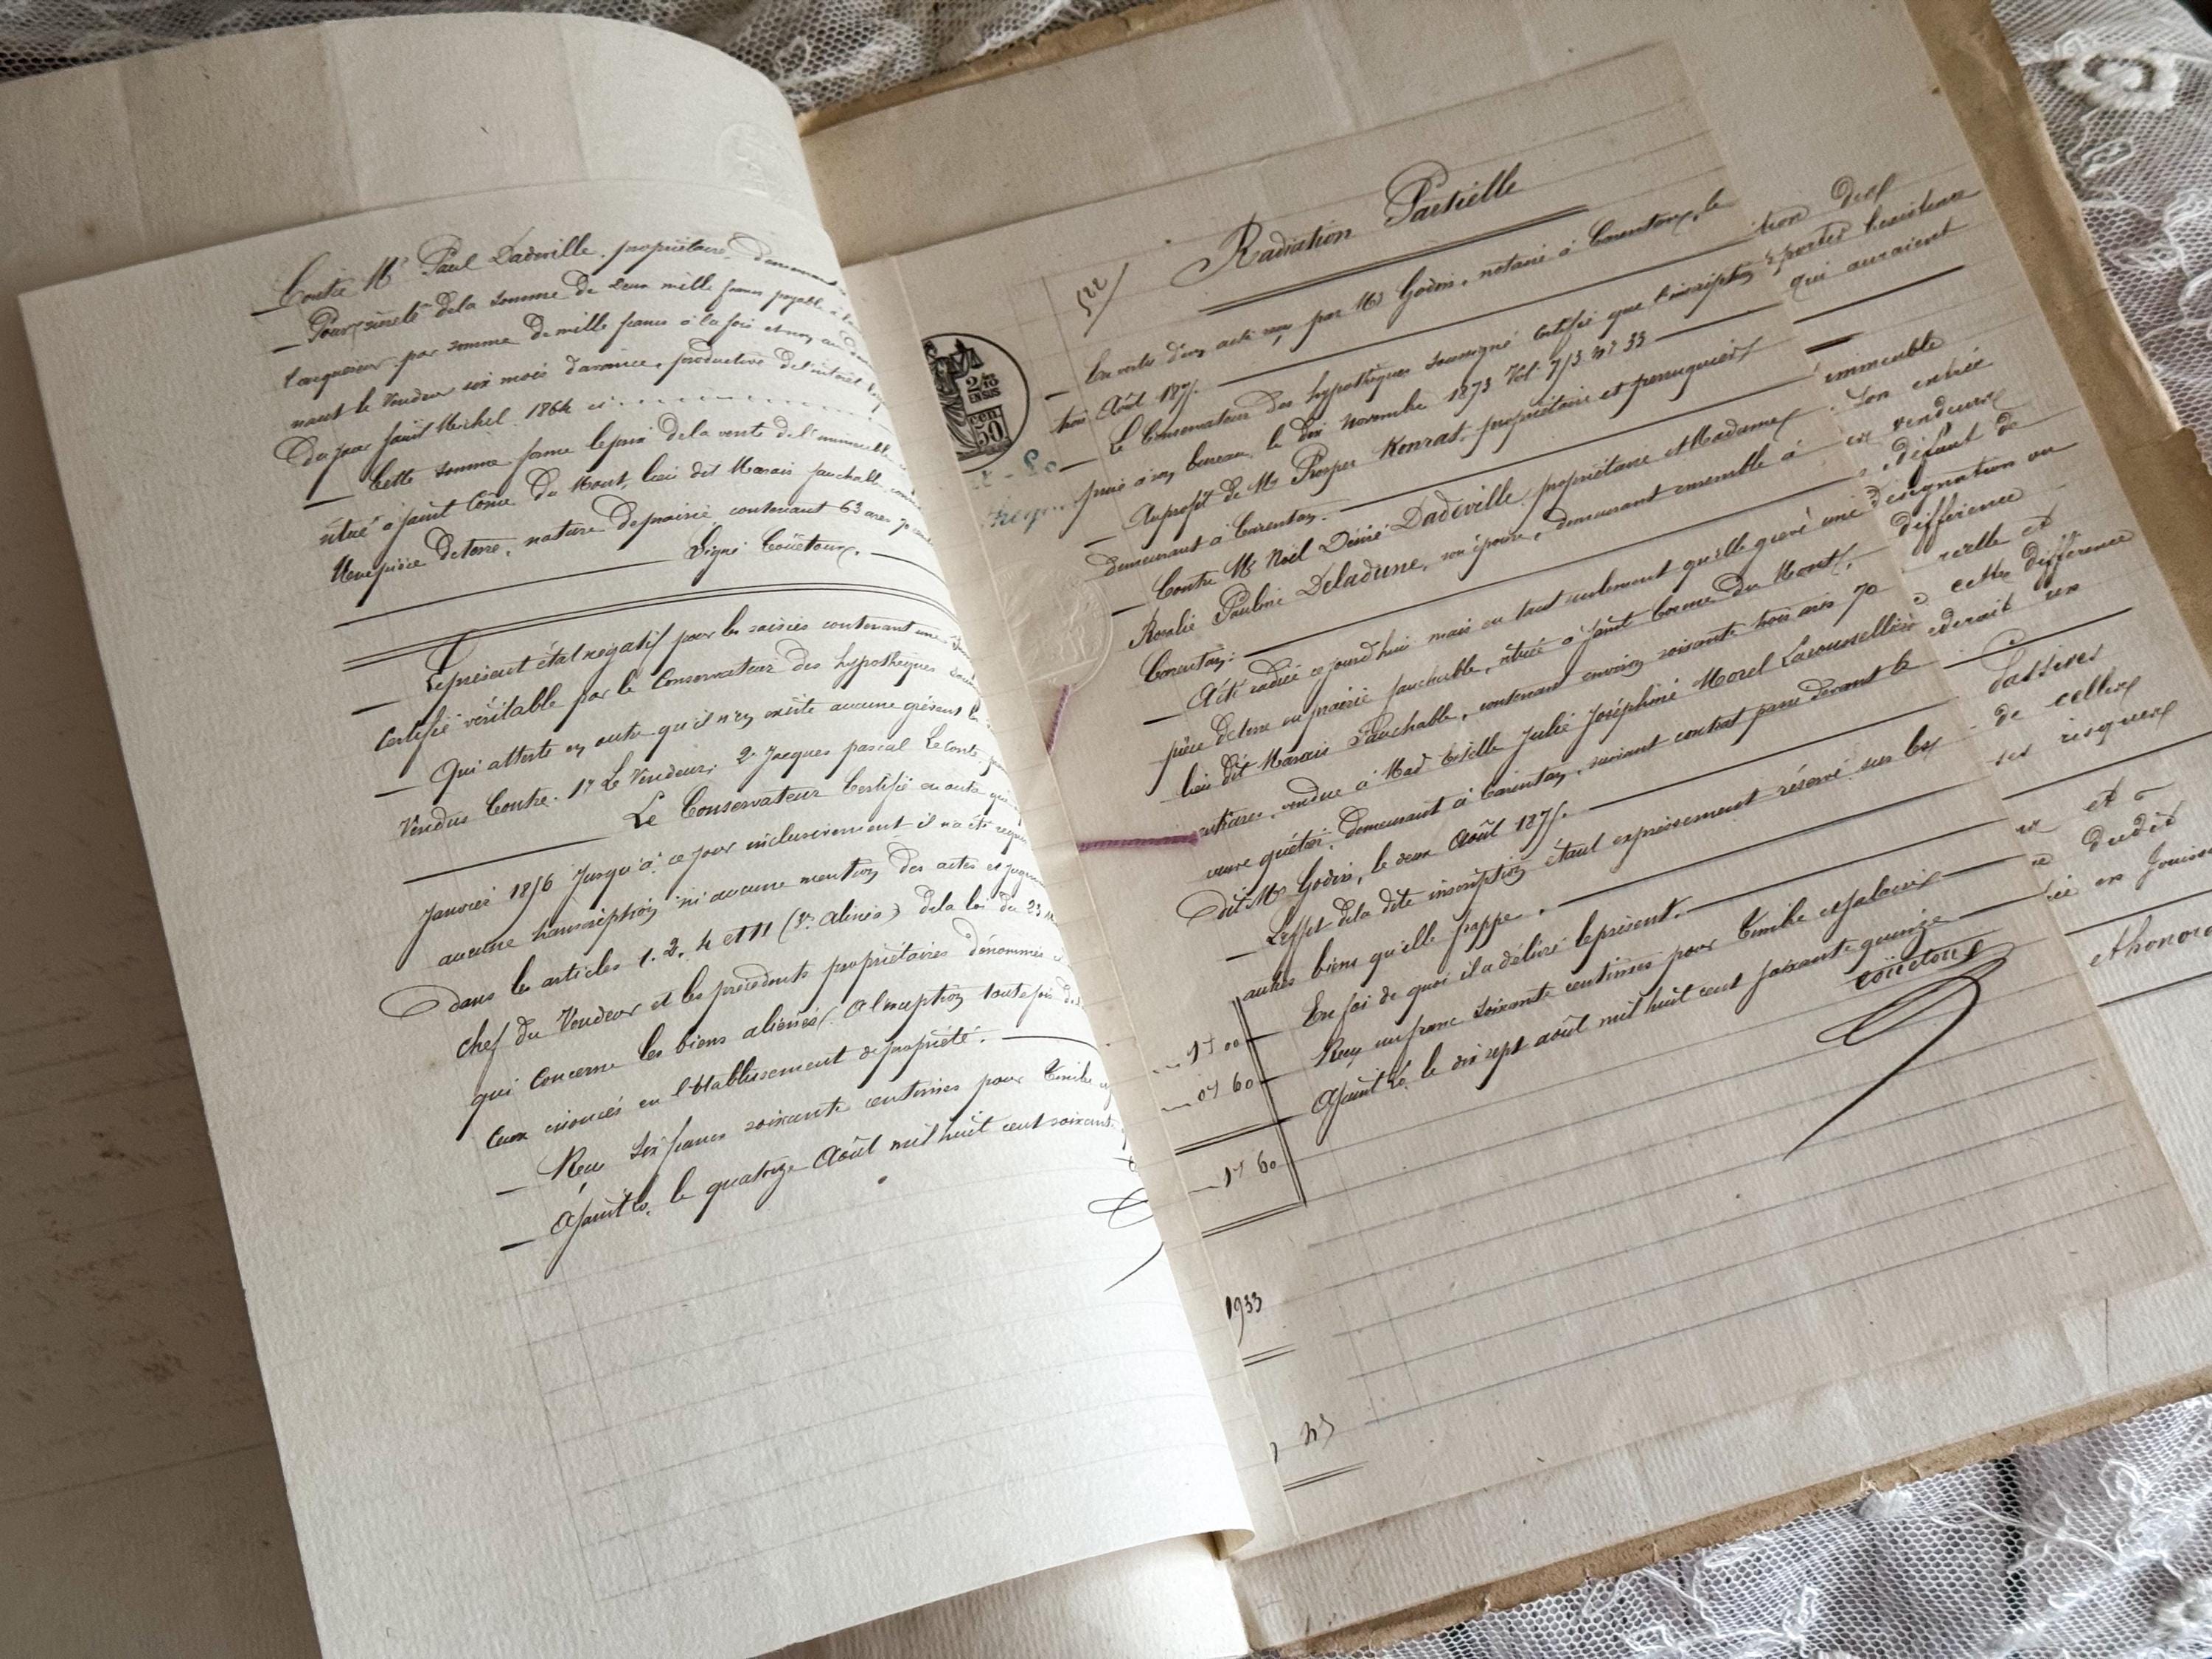 Contre Mr Paul Dadeville, propriétaire, demeurant
Pour sûreté de la somme de deux mille francs payable
l'acquéreur par somme de mille francs à la fois et
nant le Vendeur six mois d'avance, productive d'intérêt
Du jour Saint Michel 1864 ci
Cette somme forme le prix de la vente de l'immeuble
situé à Saint Côme Du Mont, lieu dit Marais fauchable,
Une pièce de terre, nature de prairie contenant 63 ares
Signé Coüetoux.
Le présent état négatif pour les saisies contenant une
Certifié véritable par le Conservateur des hypothèques
Qui atteste en outre qu'il n'en existe aucune grévant les
Vendus Contre. 1° Le Vendeur; 2° Jacques pascal Leconte,
Le Conservateur Certifie en outre que
Janvier 1856 Jusqu'à ce jour inclusivement il n'a été requis
aucune transcription ni aucune mention des actes et
dans les articles 1. 2. 4 et 11 (3e alinéa) de la loi du 23
chef du Vendeur et les précédents propriétaires dénommés
qui Concerne les biens aliénés. A l'exception toutefois de
Ceux énoncés en l'établissement de propriété.
Reçu six francs soixante centimes pour Timbre
A Saint Lo, le quatorze Août mil huit cent soixante
Radiation Partielle
522
2/10
EN SUS
50
En vertu d'un acte reçu par Me Godin, notaire à Carentan, le
trois Août 1875.
Le Conservateur des hypothèques soussigné Certifie que l'inscription
prise à son bureau, le dix novembre 1873 Vol. 713 No 33
Au profit de Mr Prosper Konrat, propriétaire et perruquier
demeurant à Carentan.
Contre Mr Noël Désiré Dadeville, propriétaire et Madame
Rosalie Pauline Deladune, son épouse, demeurant ensemble à
Carentan:
A été radiée ce jourd'hui mais en tant seulement qu'elle grève une
pièce de terre en prairie fauchable, située à Saint Corme du Mont,
lieu dit Marais Fauchable, contenant environ soixante trois ares 70
centiares, vendue à Made Julie Joséphine Morel Lacousellière
veuve Quétier, demeurant à Carentan, suivant contrat passé devant le
dit Me Godin, le deux Août 1875.
L'effet de la dite inscription étant expressément réservé sur les
autres biens qu'elle frappe.
En foi de quoi il a délivré le présent.
Reçu un franc soixante centimes pour Timbre et salaire
A Saint Lô, le dix sept août mil huit cent soixante quinze
coüetoux
1 00
0 60
1 60
1933
tion des
portés
qui auraient
immeuble
Son entrée
vendeurs
défaut de
désignation ou
différence
réelle et
cette différence
un
Passives
de celles
ses risques
et
dudit
en Jouiss
et honor